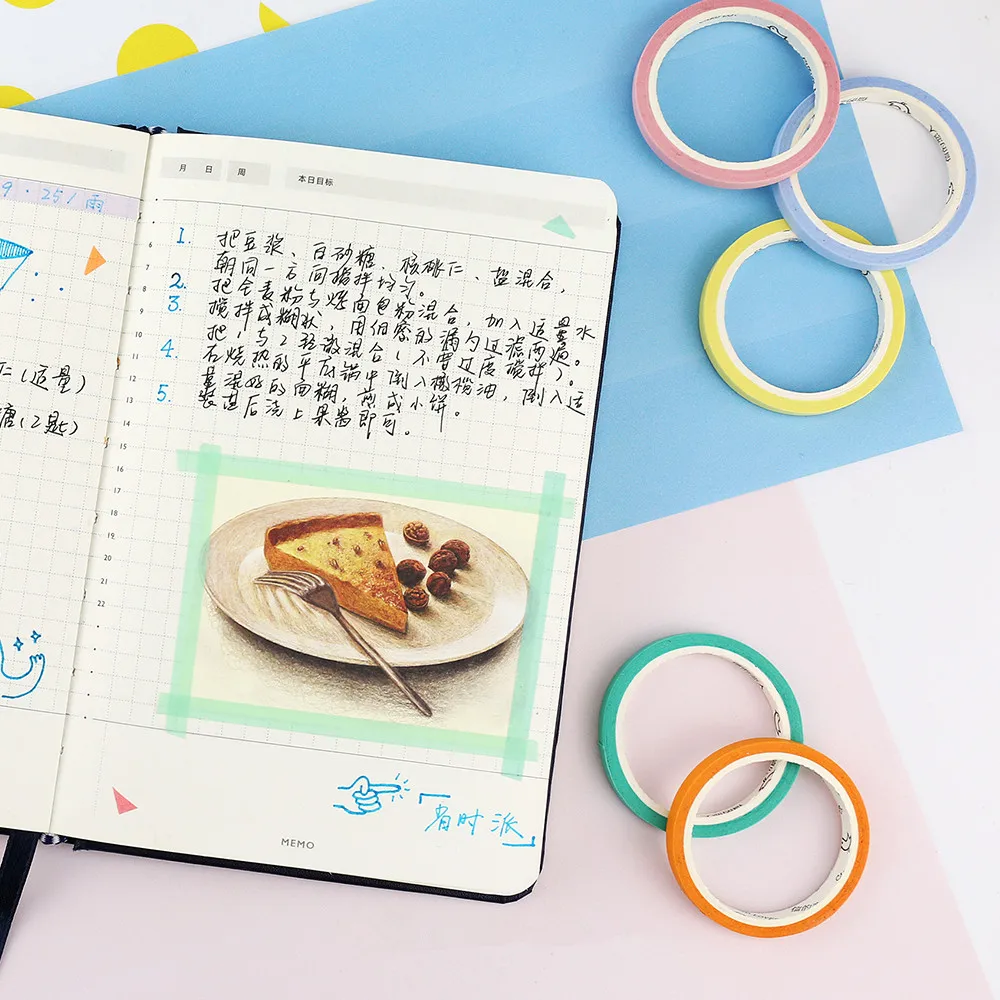 9·25/雨
仁(适量)
糖(2匙)
月 日 周
本日目标
1. 把豆浆、白砂糖、核桃仁、盐混合,
朝同一方向搅拌均匀。
2. 把全麦粉与烤面包粉混合,加入适量水
3. 搅拌成糊状,用细密的漏勺过滤两遍。
把1与2轻散混合(不要过度搅拌)。
4. 在烧热的平底锅中倒入橄榄油,倒入适
量混好的面糊,煎成小饼。
5. 装盘后浇上果酱即可。
6
7
8
9
10
11
12
13
14
15
16
17
18
19
20
21
22
「省时派」
MEMO